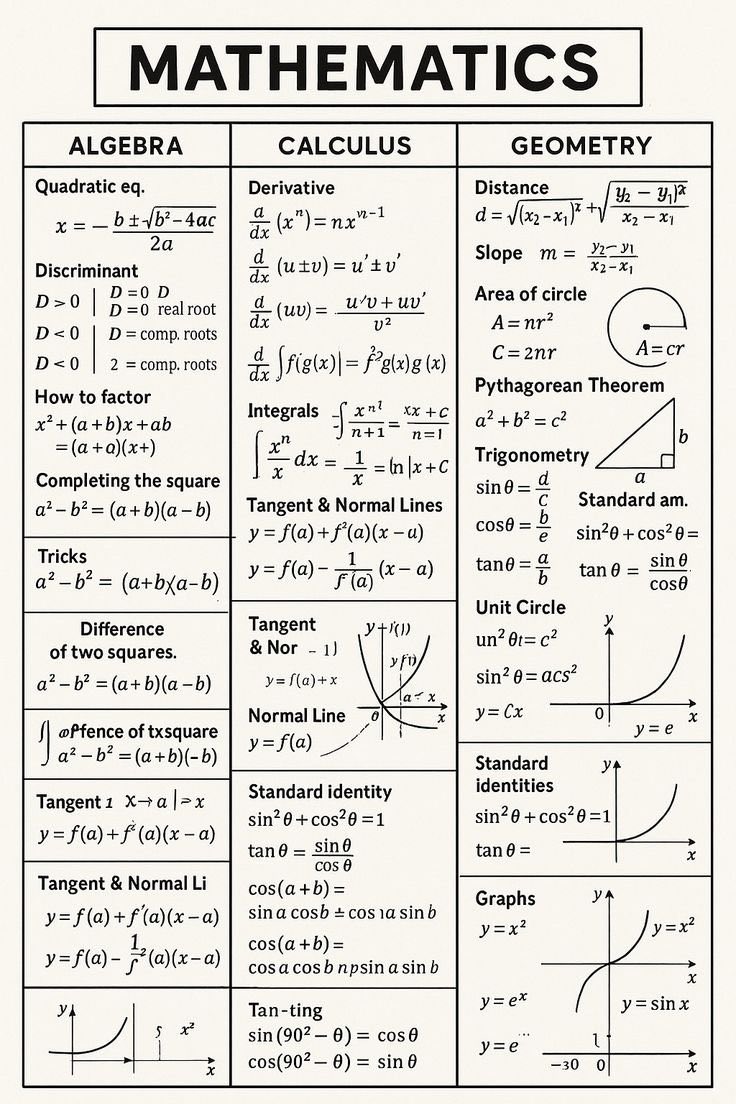 MATHEMATICS
ALGEBRA
Quadratic eq.
x = − b ± √b² − 4ac / 2a
Discriminant
D > 0 | D = 0 D
D = 0 real root
D < 0 | D = comp. roots
D < 0 | 2 = comp. roots
How to factor
x² + (a + b)x + ab
= (a + a)(x+)
Completing the square
a² − b² = (a + b)(a − b)
Tricks
a² − b² = (a+b)(a−b)
Difference
of two squares.
a² − b² = (a + b)(a − b)
∫ of txsquare
a² − b² = (a + b)(−b)
Tangent 1 x → a | = x
y = f(a) + f'(a)(x − a)
Tangent & Normal Li
y = f(a) + f'(a)(x − a)
y = f(a) − 1/f ²(a)(x − a)
y
x²
x
CALCULUS
Derivative
a/dx (xⁿ) = nxⁿ⁻¹
d/dx (u ± v) = u' ± v'
d/dx (uv) = u'v + uv' / v²
d/dx ∫f(g(x)| = f²g(x)g (x)
Integrals ∫ xⁿˡ / n+1 = xx + c / n=1
∫ xⁿ/x dx = 1/x = ln |x + C
Tangent & Normal Lines
y = f(a) + f²(a)(x − a)
y = f(a) − 1/f'(a) (x − a)
Tangent
& Nor − 1)
y = f(a) + x
Normal Line
y = f(a)
y
0
a
x
x
Standard identity
sin² θ + cos² θ = 1
tan θ = sin θ / cos θ
cos(a + b) =
sin a cos b ± cos ıa sin b
cos(a + b) =
cos a cos b npsin a sin b
Tan-ting
sin (90² − θ) = cos θ
cos(90² − θ) = sin θ
GEOMETRY
Distance
d = √(x₂ − x₁)² + √ y₂ − y₁)² / x₂ − x₁
Slope m = y₂ − y₁ / x₂ − x₁
Area of circle
A = nr²
C = 2nr
A = cr
Pythagorean Theorem
a² + b² = c²
b
a
Trigonometry
sin θ = d/C
cos θ = b/e
tan θ = a/b
Standard am.
sin² θ + cos² θ =
tan θ = sin θ / cos θ
Unit Circle
un² θt = c²
sin² θ = acs²
y = Cx
y
0
x
y = e
Standard
identities
sin² θ + cos² θ = 1
tan θ =
y
x
Graphs
y = x²
y
y = x²
x
y = eˣ
y = sin x
y = e
−30
0
x